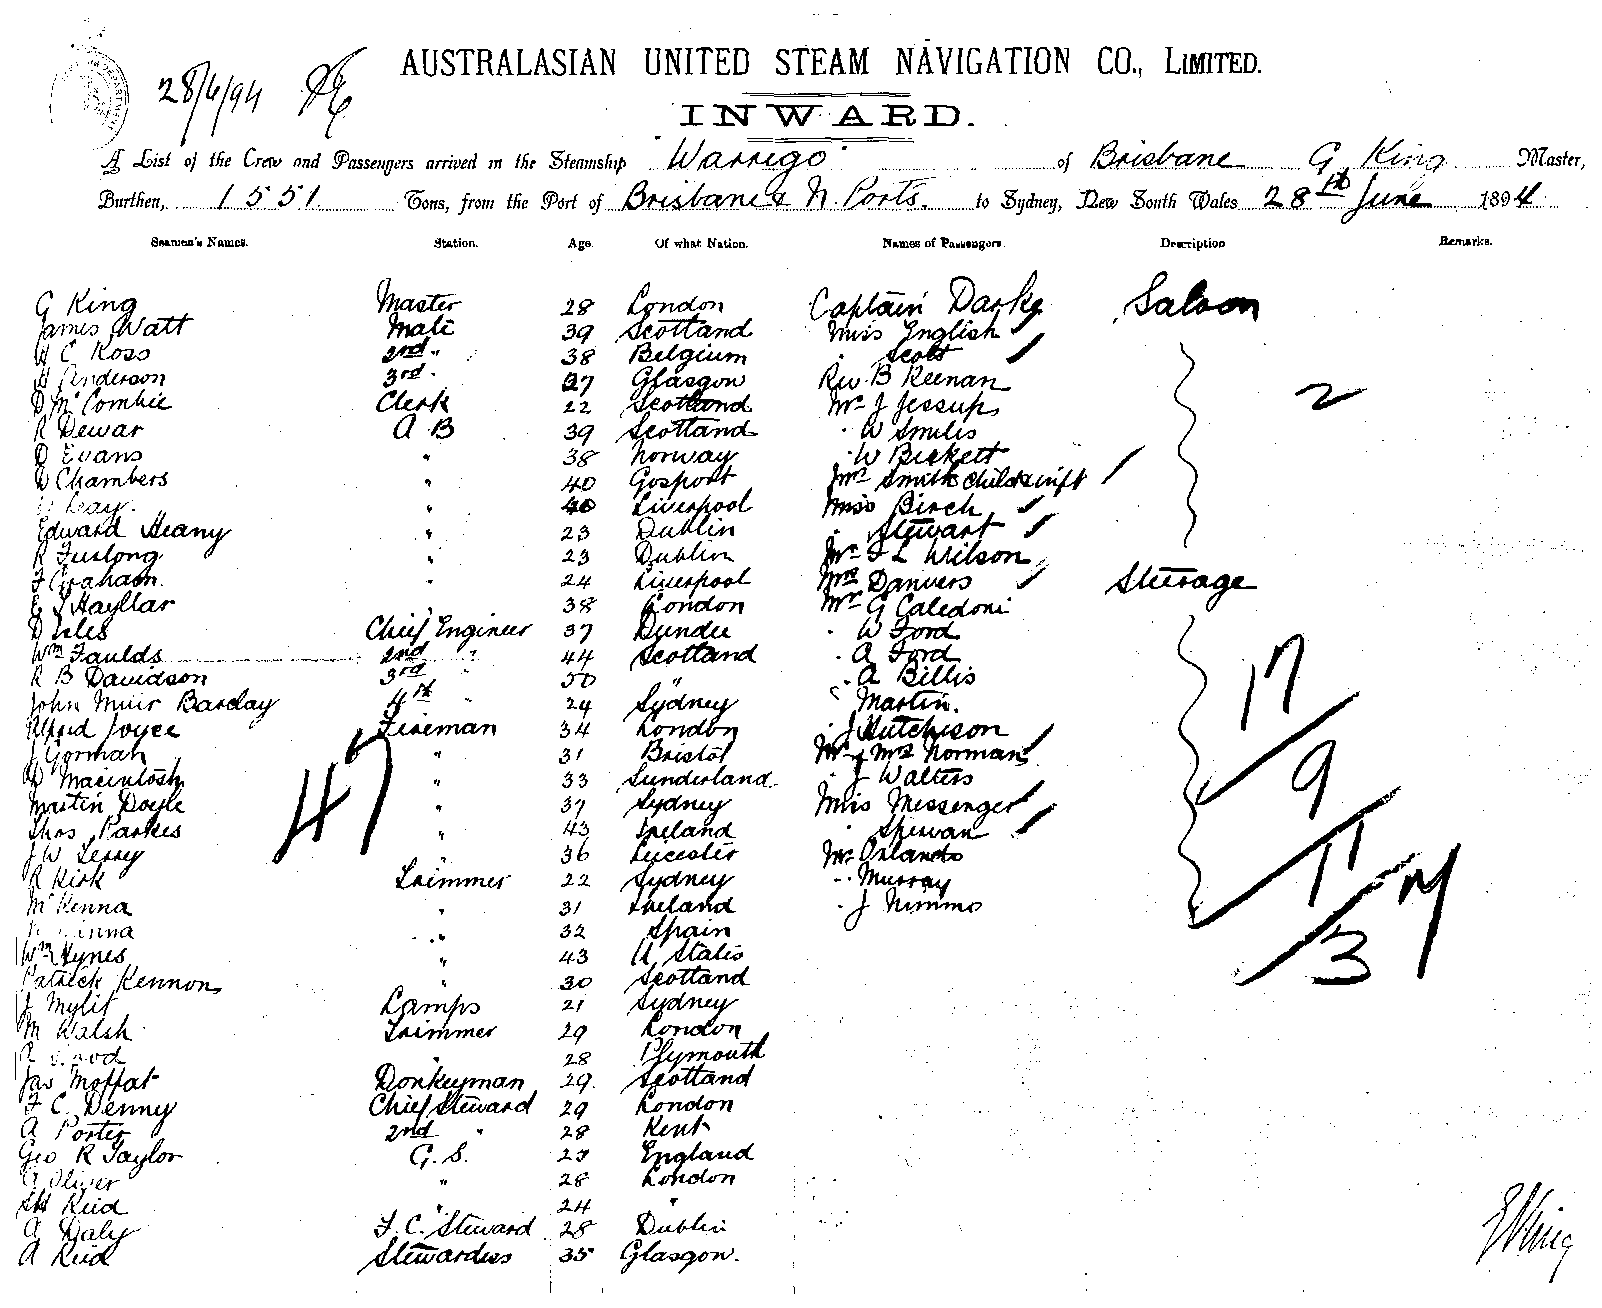 28/6/94
AUSTRALASIAN UNITED STEAM NAVIGATION CO., LIMITED.
INWARD.
A List of the Crew and Passengers arrived in the Steamship Warrego of Brisbane G King Master,
Burthen, 1551 Tons, from the Port of Brisbane & N. Ports. to Sydney, New South Wales 28th June 1894
Seamen's Names. Station. Age. Of what Nation. Names of Passengers. Description Remarks.
G King Master 28 London Captain Darke Saloon
James Watt Mate 39 Scotland Miss English
H C Ross 2nd " 38 Belgium " Scott
H Anderson 3rd " 27 Glasgow Rev. B Keenan 2
D McCombie Clerk 22 Scotland Mr J Jessup
R Dewar A B 39 Scotland " W Smiles
D Evans " 38 Norway " W Beckett
D Chambers " 40 Gosport Mrs Smith child & inft
Leay. " 40 Liverpool Miss Birch
Edward Heany " 23 Dublin " Stewart
R Furlong " 23 Dublin Mr F L Wilson
F Graham " 24 Liverpool Mrs Danvers Steerage
E J Hayllar 38 London Mr G Caledoni
D Isles Chief Engineer 37 Dundee " W Ford
Wm Faulds 2nd " 44 Scotland " A Ford
R B Davidson 3rd 50 " " A Billis 17
John Muir Barclay 4th " 24 Sydney " Martin.
Alfred Joyce Fireman 34 London " J Hutchison
J Gorman " 31 Bristol Mr & Mrs Norman
D Macintosh " 33 Sunderland " J Walters 9
Martin Doyle 47 " 37 Sydney Miss Messenger
Thos Parkes " 43 Ireland " Spiwan
J W Terry " 36 Leicester Mr Orlando 11
R Kirk Trimmer 22 Sydney " Murray
McKenna " 31 Ireland " J Nimmo
" 32 Spain 3
Wm Hynes " 43 U States
Patrick Kennon " 30 Scotland
J Mylit Lamps 21 Sydney
M Walsh Trimmer 29 London
" 28 Plymouth
Jas Moffat Donkeyman 29 Scotland
F C Denny Chief Steward 29 London
A Porter 2nd " 28 Kent
Geo R Taylor G. S. 27 England
A Oliver " 28 London
Reid " 24 "
A Daly F. C. Steward 28 Dublin
A Reid Stewardess 35 Glasgow.
G King